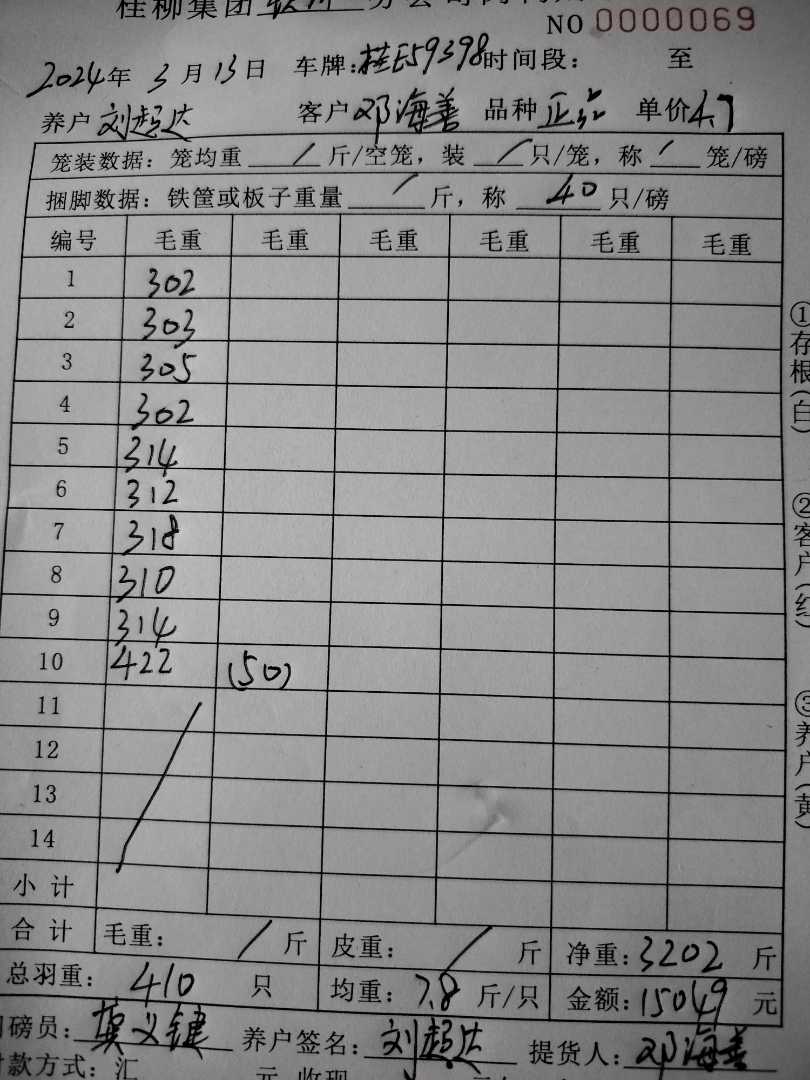 桂柳集团 分公司
NO 0000069
2024年 3月 13日 车牌:桂E59398 时间段: 至
养户 刘超达 客户 邓海善 品种 正品 单价 4.7
笼装数据: 笼均重 / 斤/空笼, 装 / 只/笼, 称 / 笼/磅
捆脚数据: 铁筐或板子重量 / 斤, 称 40 只/磅
编号 毛重 毛重 毛重 毛重 毛重 毛重
1 302
2 303
3 305
4 302
5 314
6 312
7 318
8 310
9 314
10 422 (50)
11
12
13
14
小计
合计 毛重: / 斤 皮重: / 斤 净重: 3202 斤
总羽重: 410 只 均重: 7.8 斤/只 金额: 15049 元
磅员: 莫义键 养户签名: 刘超达 提货人: 邓海善
款方式: 汇 元 收现
①存根(白) ②客户(红) ③养户(黄)